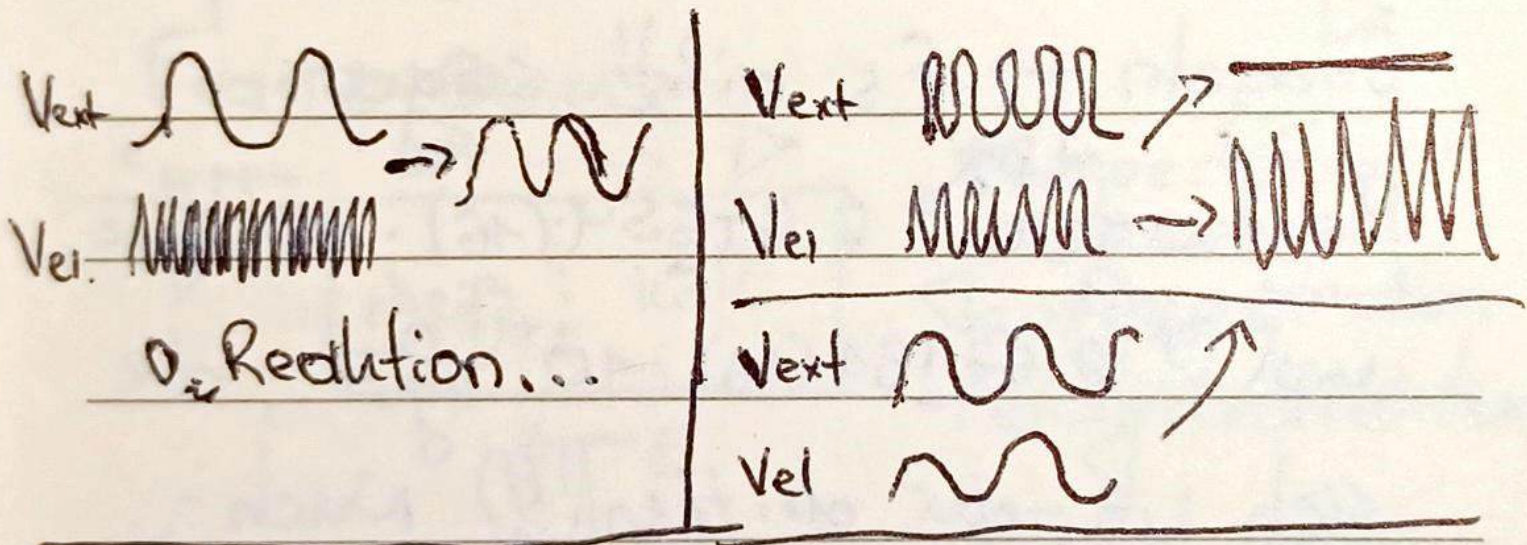 Vext
Vei.
0. Reaktion...
Vext
Vei
Vext
Vel